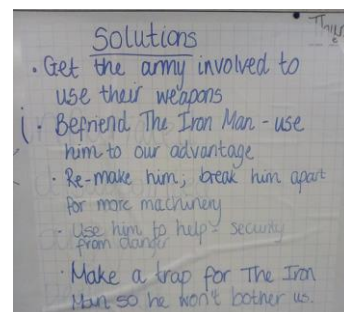 Solutions
• Get the army involved to
use their weapons
• Befriend The Iron Man - use
him to our advantage
• Re-make him; break him apart
for more machinery
- Use him to help - security
from danger
• Make a trap for The Iron
Man so he won't bother us.